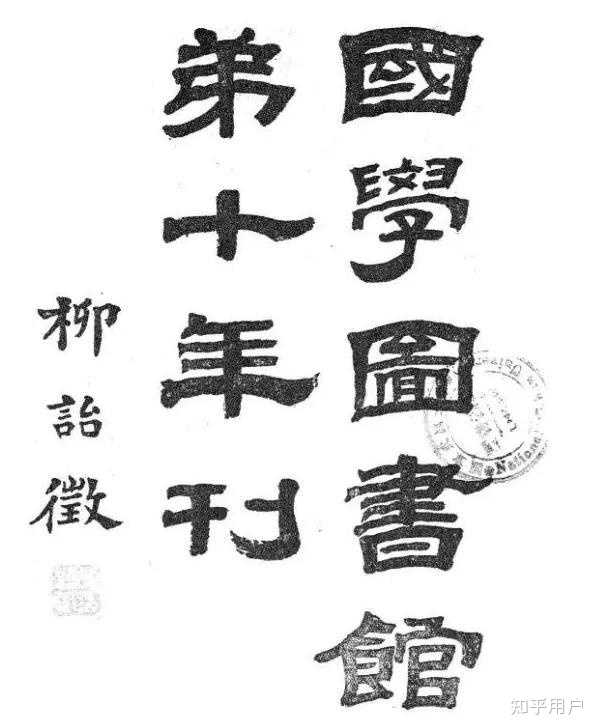 國學圖書館
弟十年刊
柳詒徵
National
知乎用户